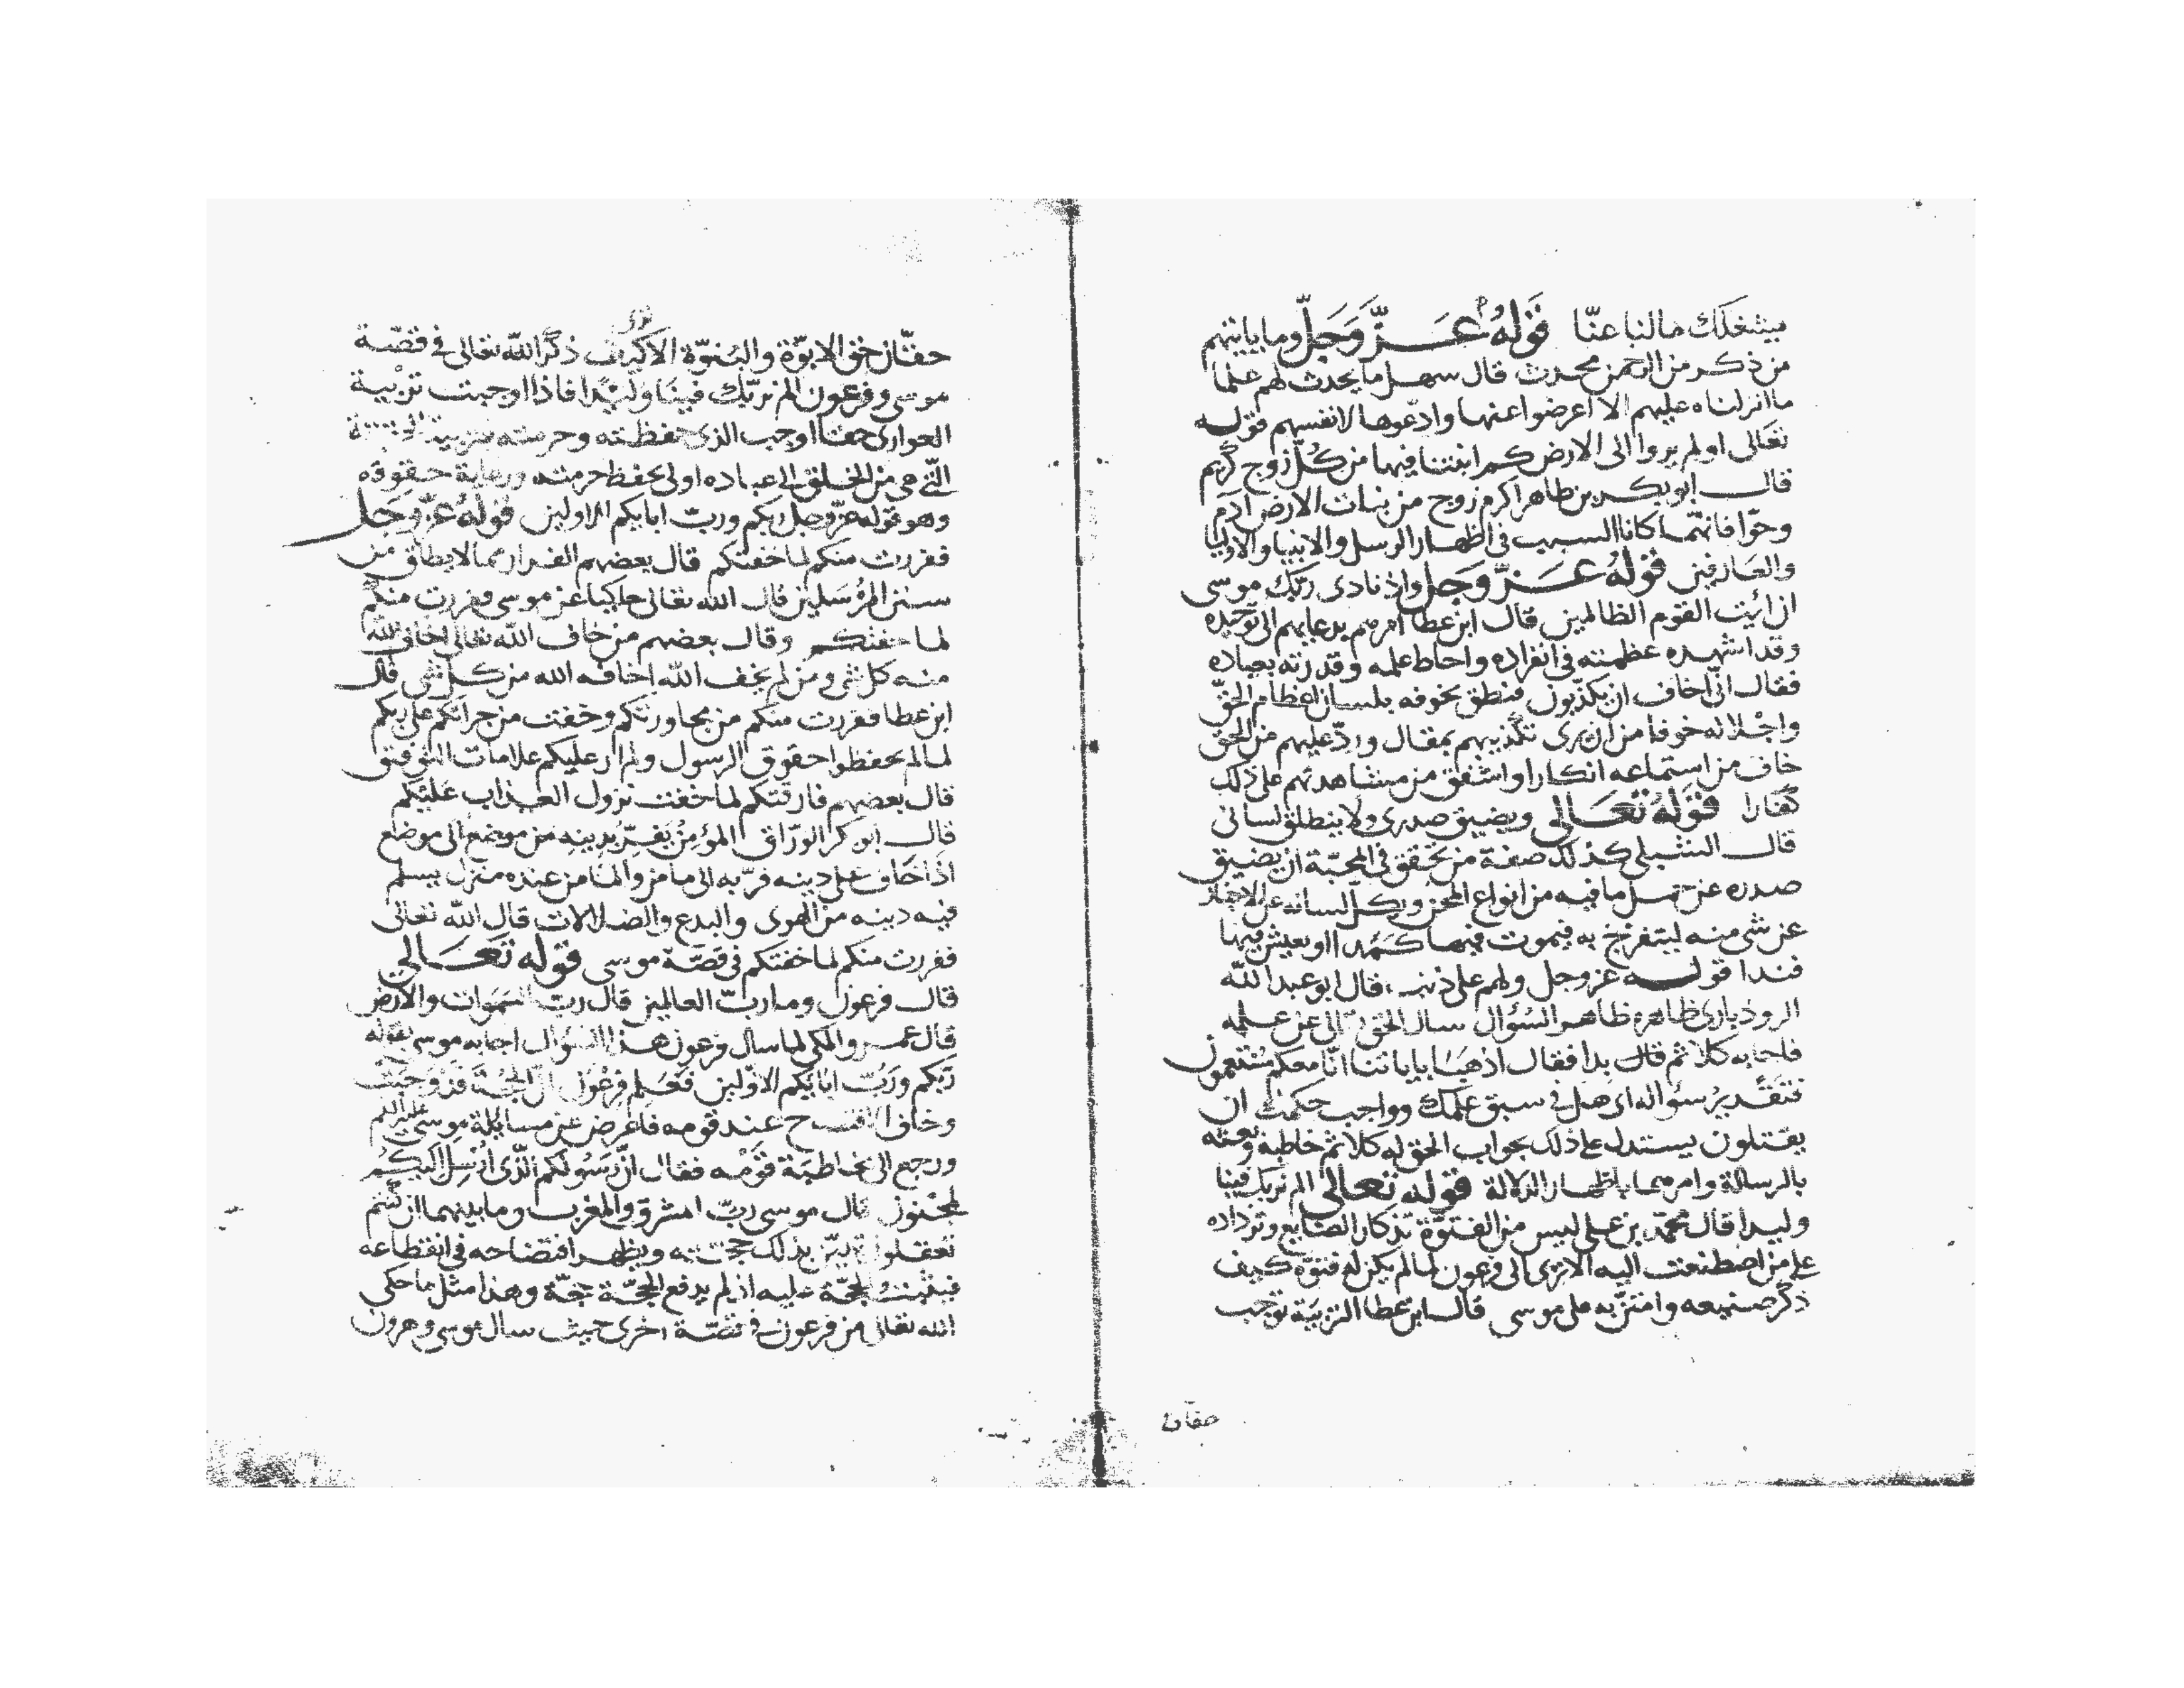 يشغلك مالنا عنّا قوله عزّ وجلّ وما ياتيهم
من ذكر من الرحمن محدث قال سهل ما يحدث لهم علما
ما انزلناه عليهم الا اعرضوا عنها وادّعوها لانفسهم قوله
تعالى اولم يروا الى الارض كم انبتنا فيها من كلّ زوج كريم
قال ابو بكر بن طاهر اكرم زوج من نبات الارض آدم
وحوّا فانهما كانا السبب في اظهار الرسل والانبيا والاوليا
والعارفين قوله عزّ وجل واذ نادى ربّك موسى
ان ائت القوم الظالمين قال ابن عطا امرهم بدعايهم الى توحيده
وقد اشهده عظمته في انفراده واحاط علمه وقدرته بعباده
فقال انّى اخاف ان يكذّبون فنطق بخوفه بلسان اعظام الحقّ
واجلاله خوفا من ان يرى تكذيبهم بمقال وردّ عليهم من الحق
خاف من استماعه انكارا واشفق من مشاهدتهم على ذلك
كفارا قوله تعالى ويضيق صدرى ولا ينطلق لسانى
قال الشبلى كذلك صفة من تحقق في المحبّة ان يضيق
صدره عن حمل ما فيه من انواع المحن ويكلّ لسانه عن الاخبار
عن شى منه ليتفرّج به فيموت فيها كمدا او يعيش فيها
فندا قوله عز وجل ولهم على ذنب قال ابو عبد الله
الروذبارى ظاهره ظاهر السؤال سال الحق تعالى عن علمه
فاجابه كلا ثم قال بدا فقال اذهبا باياتنا انّا معكم مستمعون
فتقدير سؤاله اى هل في سبق علمك وواجب حكمك ان
يقتلون يستدل على ذلك بجواب الحق له كلا ثم خاطبه وبعثه
بالرسالة وامرهما باظهار الدلالة قوله تعالى الم نربك فينا
وليدا قال محمّد بن على ليس من الفتوّة تذكار الصنايع وترداده
على من اصطنعت اليه الا ترى الى فرعون لما لم يكن له فتوّة كيف
ذكر صنيعه وامتنّ به على موسى قال ابن عطا التربية توجب
حقان
حقّان حق الابوّة والبنوّة الا كيف ذكر الله تعالى في قصّة
موسى وفرعون الم نربّك فينا وليدا فاذا اوجبت تربية
العوارى حقا اوجب الذى حفظته وحرمته تربية الحقيقة
التّى هى من الخلق الى عباده اولى بحفظ حرمته ورعاية حقوقه
وهو قوله عزّ وجل ربكم وربّ ابايكم الاولين قوله عزّ وجل
ففررت منكم لما خفتكم قال بعضهم الفرار مما لا يطاق من
سنن المرسلين قال الله تعالى حاكيا عن موسى ففررت منكم
لما خفتكم وقال بعضهم من خاف الله تعالى اخاف الله
منه كل شى ومن لم يخف الله اخافه الله من كل شى قال
ابن عطا ففررت منكم من مجاورتكم وخفت من جراتكم على ربكم
لما لم تحفظوا حقوق الرسول ولم ار عليكم علامات التوفيق
قال بعضهم فارقتكم لما خفت نزول العذاب عليكم
قال ابو بكر الورّاق المؤمن يفرّ بدينه من موضع الى موضع
اذا خاف على دينه فرّ به الى مامن والمامن عنده منزل يسلم
فيه دينه من الهوى والبدع والضلالات قال الله تعالى
ففررت منكم لما خفتكم في قصّة موسى قوله تعالى
قال فرعون وما ربّ العالمين قال ربّ السموات والارض
قال عمرو المكى لما سال فرعون هذا السؤال اجابه موسى بقوله
ربّكم وربّ ابايكم الاوّلين فعلم فرعون انّ الحجّة قد وجبت
وخاف ان يفتضح عند قومه فاعرض عن مسايلة موسى عليه السلم
ورجع الى مخاطبة قومه فقال انّ رسولكم الّذى ارسل اليكم
لمجنون قال موسى ربّ المشرق والمغرب وما بينهما ان كنتم
تعقلون يبيّن بذلك حجّته ويظهر افتضاحه في انقطاعه
فبقيت الحجّة عليه اذ لم يدفع الحجّة حجّة وهذا مثل ما حكى
الله تعالى من فرعون في قصّة اخرى حيث سال موسى وهرون